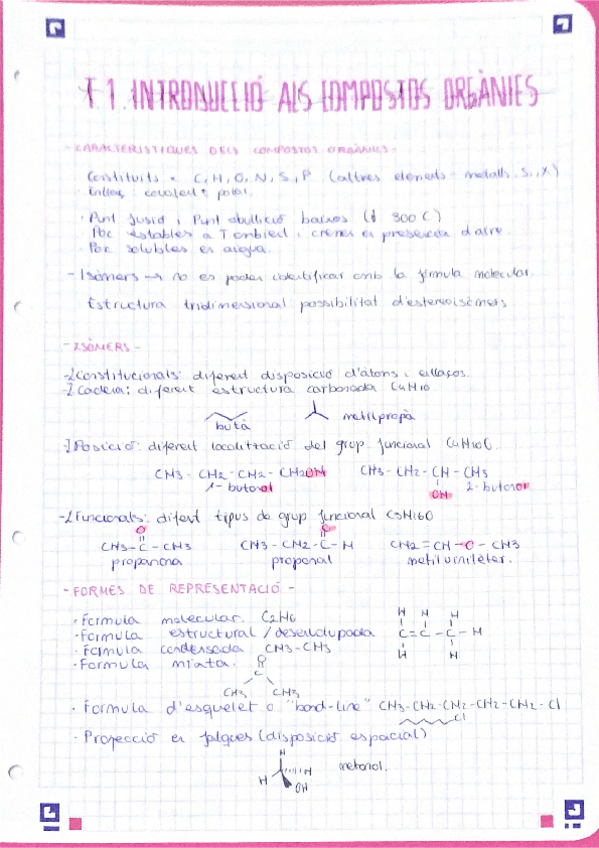 T 1. INTRODUCCIÓ ALS COMPOSTOS ORGÀNICS
- CARACTERISTIQUES DELS COMPOSTOS ORGÀNICS -
Constituïts = C, H, O, N, S, P (altres elements = metalls, Si, X)
Enllaç: covalent i polar.
· Punt fusió i Punt ebullició baixos (↓ 300 C)
Poc estables a T ambient i cremen en presencia d'aire.
Poc solubles en aigua.
- Isòmers → no es poden identificar amb la fórmula molecular.
Estructura tridimensional possibilitat d'estereoisòmers
- ISÒMERS -
Constitucionals: diferent disposició d'àtoms i enllaços.
Cadena: diferent estructura carbonada C4H10
butà metilpropà
Posició: diferent localització del grup funcional C4H10O.
CH3 - CH2 - CH2 - CH2OH CH3 - CH2 - CH - CH3
OH
1- butanol 2- butanol
Funcionals: difent tipus de grup funcional C3H6O
O O
CH3 - C - CH3 CH3 - CH2 - C - H CH2 = CH - O - CH3
propanona propanal metilviniléter.
- FORMES DE REPRESENTACIÓ -
· Formula molecular. C2H6
· Formula estructural / desenvolupada
H H H
C = C - C - H
H H
· Formula condensada CH3-CH3
· Formula mixta.
O
C
CH3 CH3
· Formula d'esquelet o "bond-line" CH3-CH2-CH2-CH2-CH2-Cl
Cl
· Projecció en falques (disposició espacial)
H
H H
OH
metanol.